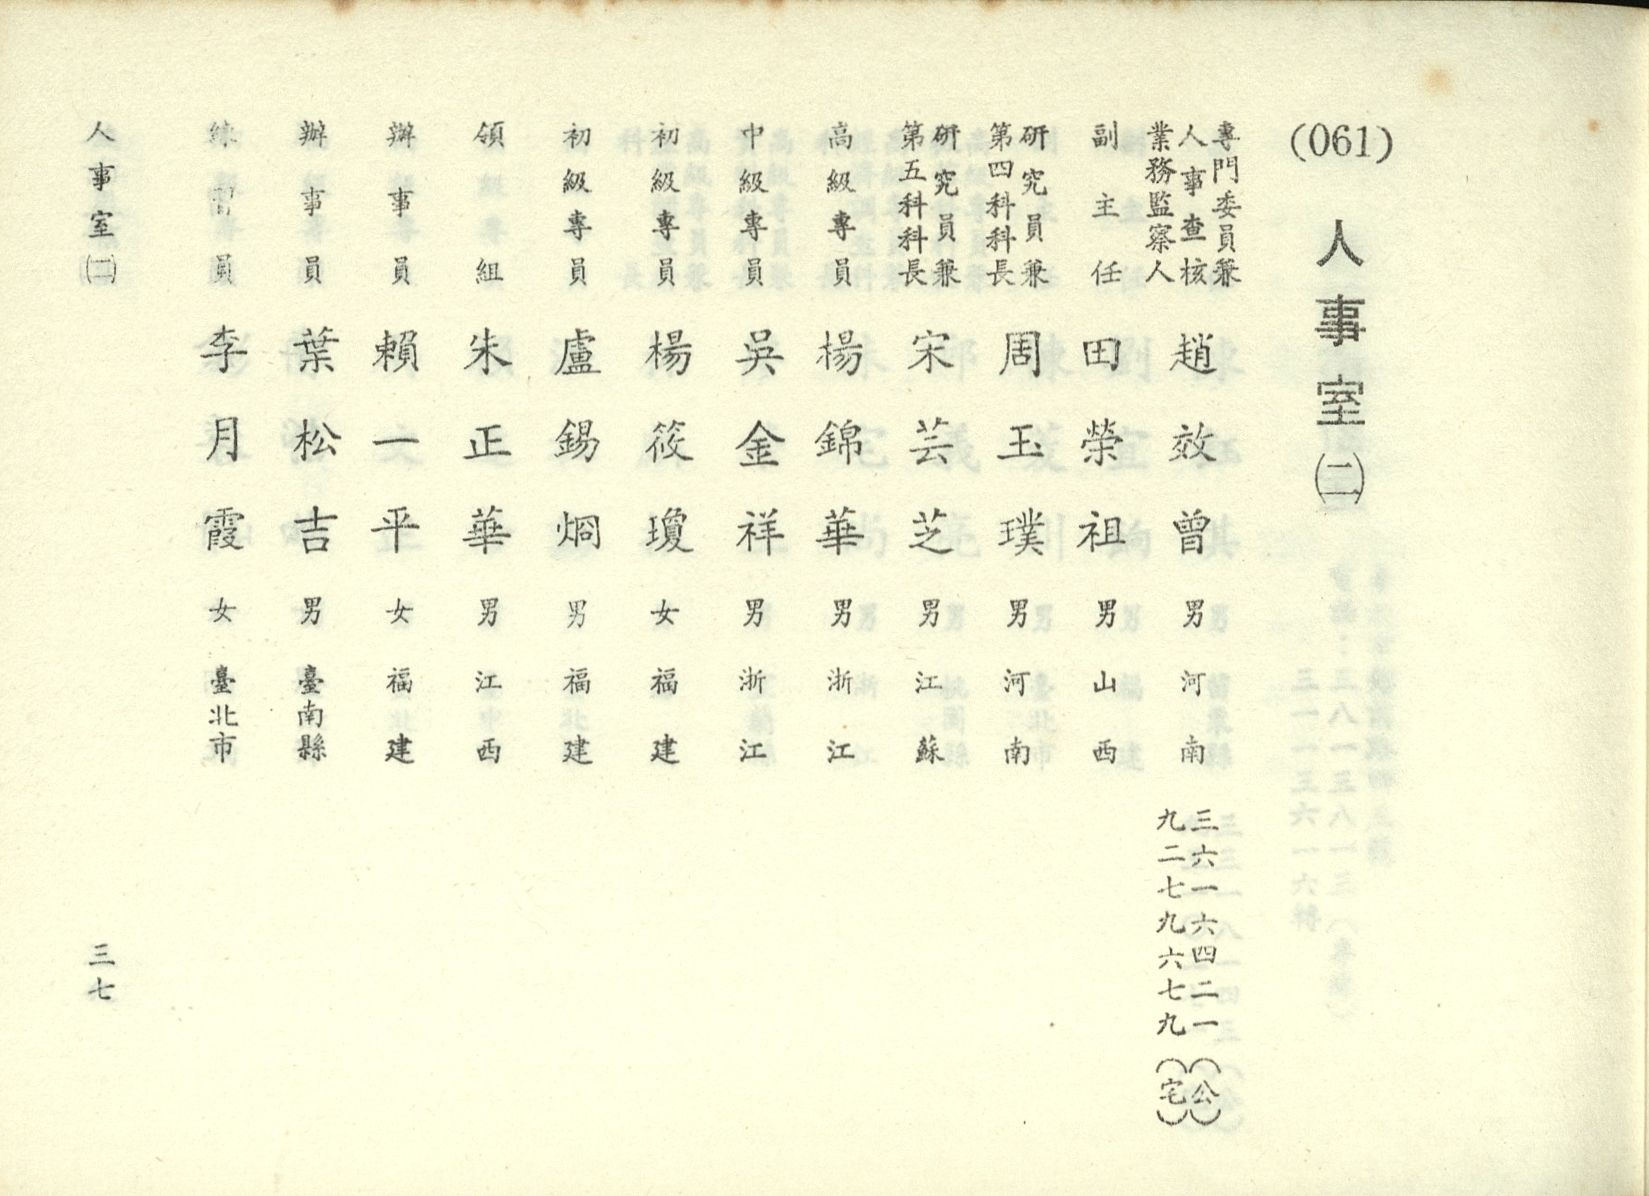 (061)
人事室㈡
專門委員兼
人事查核
業務監察人
趙效曾 男 河南
三六一六四二一(公)
九二七九六七九(宅)
副主任 田榮祖 男 山西
研究員兼
第四科科長
周玉璞 男 河南
研究員兼
第五科科長
宋芸芝 男 江蘇
高級專員 楊錦華 男 浙江
中級專員 吳金祥 男 浙江
初級專員 楊筱瓊 女 福建
初級專員 盧錫烱 男 福建
領組 朱正華 男 江西
辦事員 賴一平 女 福建
辦事員 葉松吉 男 臺南縣
練習員 李月霞 女 臺北市
人事室㈡
三七